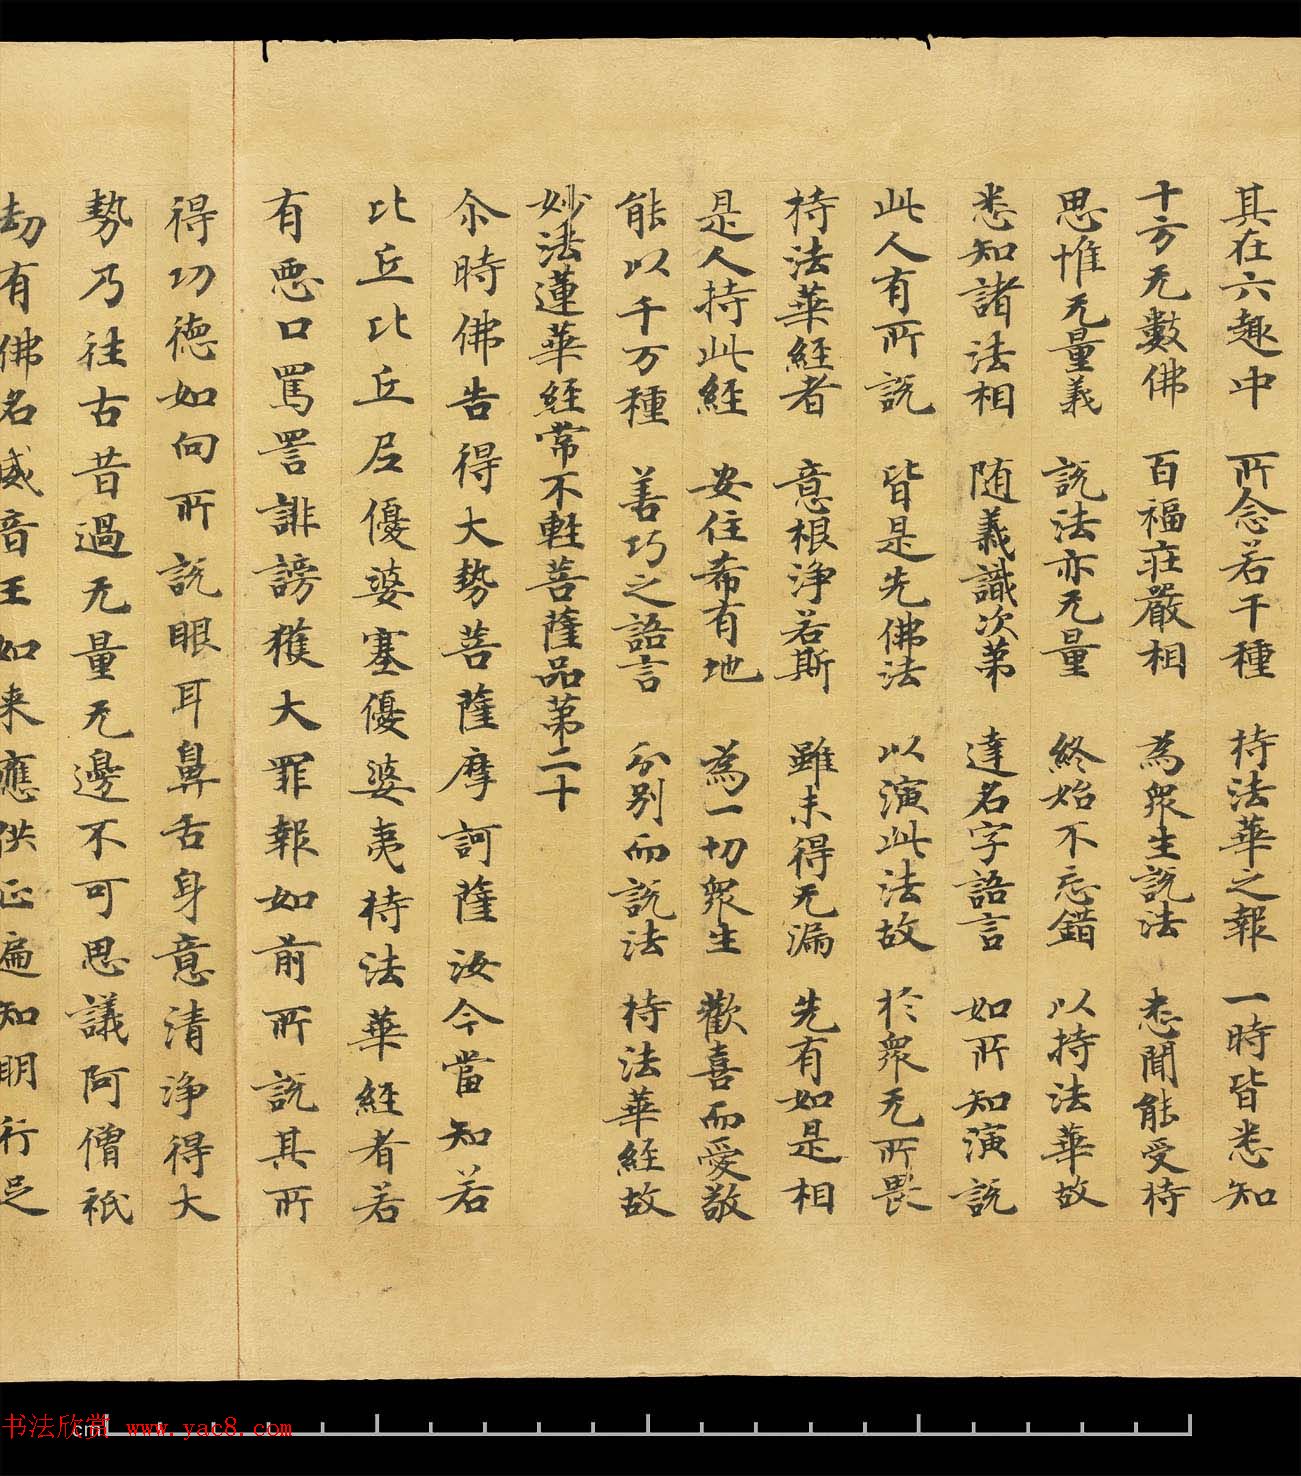 其在六趣中　所念若干種　持法華之報　一時皆悉知
十方无數佛　百福莊嚴相　為衆生說法　悉聞能受持
思惟无量義　說法亦无量　終始不忘錯　以持法華故
悉知諸法相　随義識次第　達名字語言　如所知演說
此人有所說　皆是先佛法　以演此法故　於衆无所畏
持法華經者　意根淨若斯　雖未得无漏　先有如是相
是人持此經　安住希有地　為一切衆生　歡喜而愛敬
能以千万種　善巧之語言　分別而說法　持法華經故
妙法蓮華經常不輕菩薩品第二十
尒時佛告得大勢菩薩摩訶薩汝今當知若
比丘比丘尼優婆塞優婆夷持法華經者若
有惡口罵詈誹謗獲大罪報如前所說其所
得功德如向所說眼耳鼻舌身意清淨得大
勢乃往古昔過无量无邊不可思議阿僧祇
劫有佛名威音王如来應供正遍知明行足
书法欣赏 www.yac8.com
cm